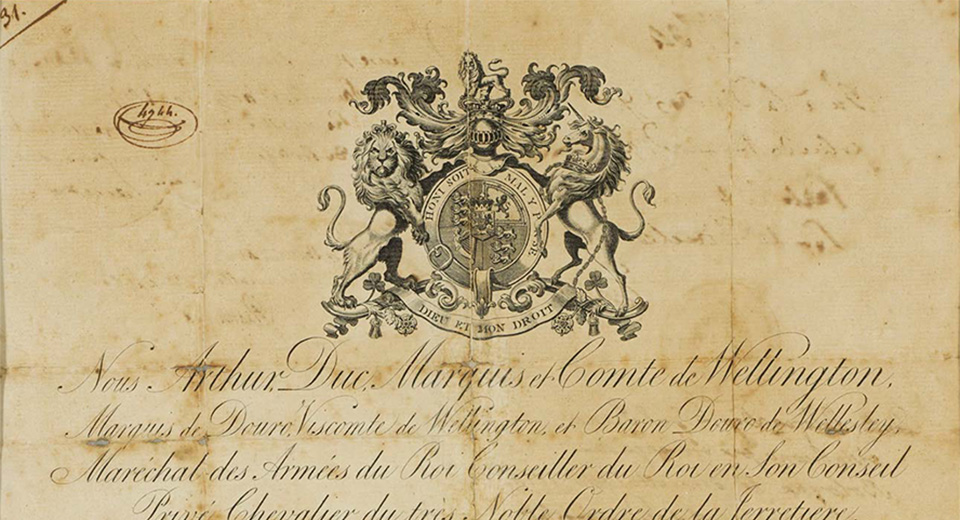 31.
4944.
HONI SOIT MAL Y P SE
DIEU ET MON DROIT
Nous Arthur, Duc, Marquis et Comte de Wellington,
Marquis de Douro, Viscomte de Wellington, et Baron Douro de Wellesley,
Maréchal des Armées du Roi Conseiller du Roi en Son Conseil
Privé Chevalier du très Noble Ordre de la Jerretière